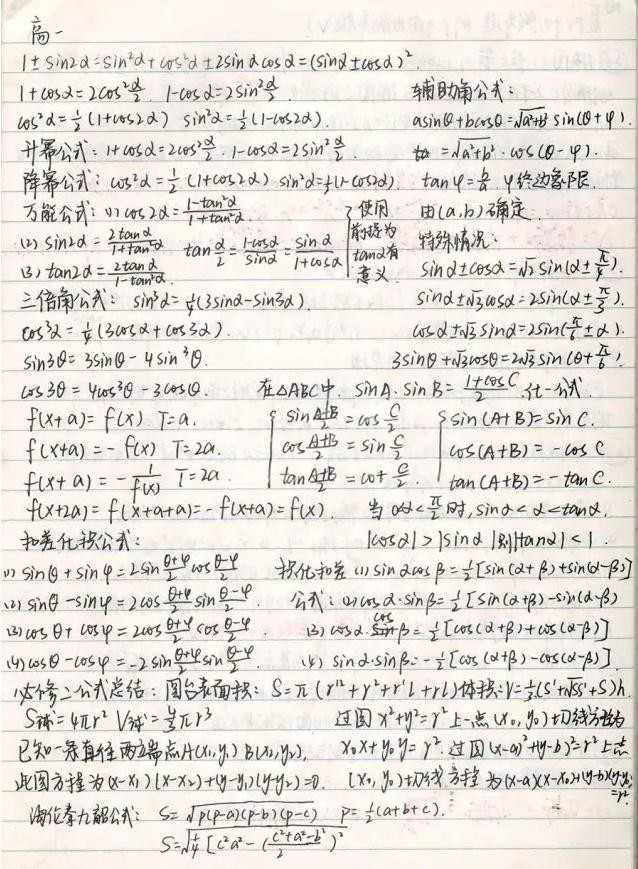 高一
1±sin2α=sin²α+cos²α±2sinαcosα=(sinα±cosα)²
1+cosα=2cos²α/2. 1-cosα=2sin²α/2.
cos²α=1/2(1+cos2α) sin²α=1/2(1-cos2α).
升幂公式:1+cosα=2cos²α/2. 1-cosα=2sin²α/2.
降幂公式:cos²α=1/2(1+cos2α) sin²α=1/2(1-cos2α).
万能公式:(1)cos2α=(1-tan²α)/(1+tan²α)
(2)sin2α=2tanα/(1+tan²α) tanα/2=(1-cosα)/sinα=sinα/(1+cosα)
(3)tan2α=2tanα/(1-tan²α).
使用
前提为
tanα有
意义.
辅助角公式:
asinθ+bcosθ=√(a²+b²) sin(θ+φ).
=√(a²+b²)·cos(θ-φ).
tanφ=b/a φ终边象限
由(a,b)确定.
特殊情况:
sinα±cosα=√2sin(α±π/4).
sinα±√3cosα=2sin(α±π/3).
cosα±√3sinα=2sin(π/6±α).
3sinθ+√3cosθ=2√3sin(θ+π/6).
三倍角公式:sin³α=1/4(3sinα-sin3α).
cos³α=1/4(3cosα+cos3α)
sin3θ=3sinθ-4sin³θ.
cos3θ=4cos³θ-3cosθ. 在△ABC中 sinA·sinB=(1+cosC)/2.
f(x+a)=f(x) T=a.
f(x+a)=-f(x) T=2a.
f(x+a)=-1/f(x) T=2a.
sin(A+B)/2=cosC/2
cos(A+B)/2=sinC/2
tan(A+B)/2=cotC/2.
sin(A+B)=sinC.
cos(A+B)=-cosC
tan(A+B)=-tanC.
f(x+2a)=f(x+a+a)=-f(x+a)=f(x). 当0<α<π/2时,sinα<α<tanα.
|cosα|>|sinα|则|tanα|<1.
和差化积公式:
(1)sinθ+sinφ=2sin(θ+φ)/2cos(θ-φ)/2
(2)sinθ-sinφ=2cos(θ+φ)/2sin(θ-φ)/2.
(3)cosθ+cosφ=2cos(θ+φ)/2cos(θ-φ)/2
(4)cosθ-cosφ=-2sin(θ+φ)/2sin(θ-φ)/2.
积化和差 (1)sinαcosβ=1/2[sin(α+β)+sin(α-β)]
公式:(2)cosα·sinβ=1/2[sin(α+β)-sin(α-β)
(3)cosα·cosβ=1/2[cos(α+β)+cos(α-β)]
(4)sinα·sinβ=-1/2[cos(α+β)-cos(α-β)].
必修二公式总结:圆台表面积:S=π(r'²+r²+r'l+rl)体积:V=1/3(S'+√SS'+S)h.
S球=4πr² V球=4/3πr³ 过圆x²+y²=r²上一点(x₀,y₀)切线方程为
已知一条直径两端点A(x₁,y₁) B(x₂,y₂), x₀x+y₀y=r². 过圆(x-a)²+(y-b)²=r²上点
此圆方程为(x-x₁)(x-x₂)+(y-y₁)(y-y₂)=0. (x₀,y₀)切线方程为
海伦秦九韶公式: S=√(p(p-a)(p-b)(p-c)) p=1/2(a+b+c).
S=√(1/4[c²a²-((c²+a²-b²)/2)²